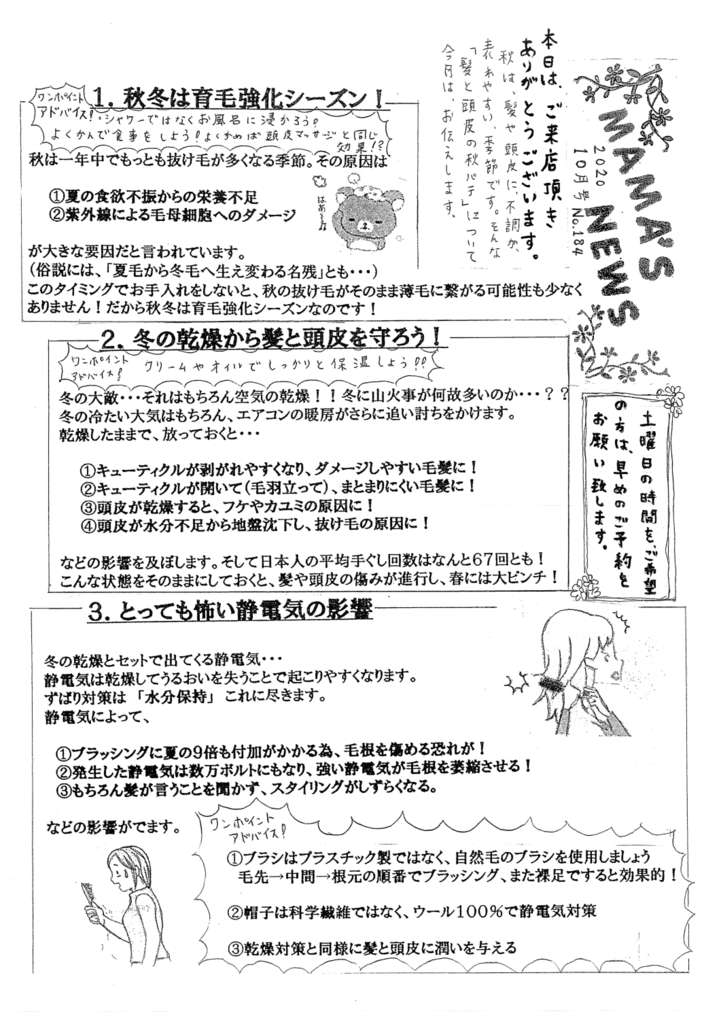 MAMA'S NEWS
2020 10月号 No.184
本日は、ご来店頂き
ありがとうございます。
秋は、髪や頭皮に、不調が、
表れやすい、季節です。そんな
「髪と頭皮の秋バテ」について
今月は、お伝えします。
土曜日の時間を、ご希望
の方は、早めのご予約を
お願い致します。
1．秋冬は育毛強化シーズン！
ワンポイント
アドバイス！・シャワーではなくお風呂に浸かろう！
よくかんで食事をしよう！よくかめば頭皮マッサージと同じ
効果！？
秋は一年中でもっとも抜け毛が多くなる季節。その原因は
①夏の食欲不振からの栄養不足
②紫外線による毛母細胞へのダメージ
はあ〜
が大きな要因だと言われています。
（俗説には、「夏毛から冬毛へ生え変わる名残」とも・・・）
このタイミングでお手入れをしないと、秋の抜け毛がそのまま薄毛に繋がる可能性も少なく
ありません！だから秋冬は育毛強化シーズンなのです！
2．冬の乾燥から髪と頭皮を守ろう！
ワンポイント
アドバイス！ クリームやオイルでしっかりと保湿しよう！！
冬の大敵・・・それはもちろん空気の乾燥！！冬に山火事が何故多いのか・・・？？
冬の冷たい大気はもちろん、エアコンの暖房がさらに追い討ちをかけます。
乾燥したままで、放っておくと・・・
①キューティクルが剥がれやすくなり、ダメージしやすい毛髪に！
②キューティクルが開いて（毛羽立って）、まとまりにくい毛髪に！
③頭皮が乾燥すると、フケやカユミの原因に！
④頭皮が水分不足から地盤沈下し、抜け毛の原因に！
などの影響を及ぼします。そして日本人の平均手ぐし回数はなんと67回とも！
こんな状態をそのままにしておくと、髪や頭皮の傷みが進行し、春には大ピンチ！
3．とっても怖い静電気の影響
冬の乾燥とセットで出てくる静電気・・・
静電気は乾燥してうるおいを失うことで起こりやすくなります。
ずばり対策は 「水分保持」 これに尽きます。
静電気によって、
①ブラッシングに夏の9倍も付加がかかる為、毛根を傷める恐れが！
②発生した静電気は数万ボルトにもなり、強い静電気が毛根を萎縮させる！
③もちろん髪が言うことを聞かず、スタイリングがしずらくなる。
などの影響がでます。
ワンポイント
アドバイス！
①ブラシはプラスチック製ではなく、自然毛のブラシを使用しましょう
毛先→中間→根元の順番でブラッシング、また裸足ですると効果的！
②帽子は科学繊維ではなく、ウール100％で静電気対策
③乾燥対策と同様に髪と頭皮に潤いを与える